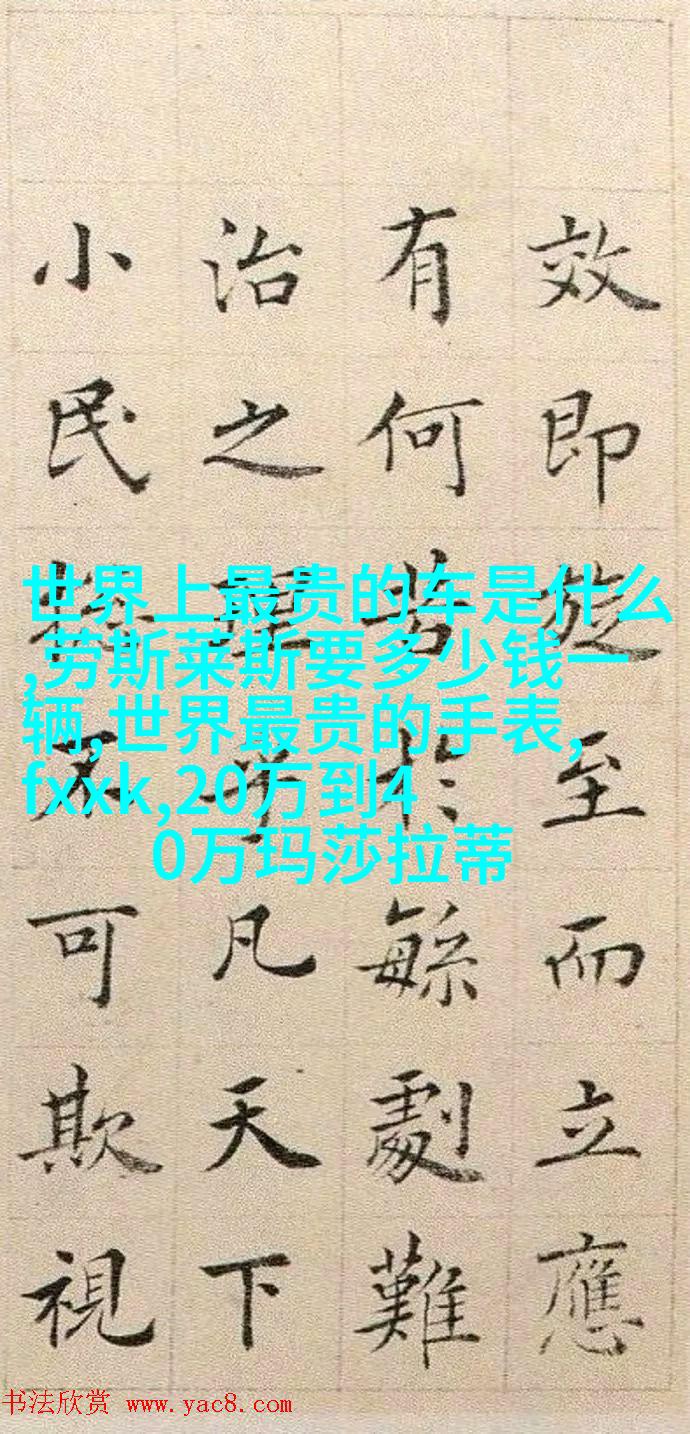 效即旋至而立應
有何苦於緐劇難
治之乎凡天下
小民不可欺視
世界上最贵的车是什么
,劳斯莱斯要多少钱一
辆,世界最贵的手表,
fxxk,20万到4
0万玛莎拉蒂
书法欣赏 www.yac8.com